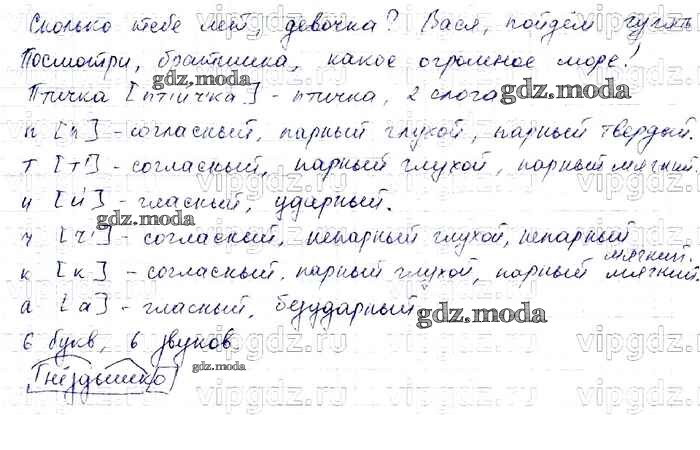 Сколько тебе лет, девочка? Вася, пойдём гулять
Посмотри, братишка, какое огромное море!
gdz.moda
Птичка [пт'ич'ка] - птичка, 2 слога
gdz.moda
п [п] - согласный, парный глухой, парный твердый.
т [т'] - согласный, парный глухой, парный мягкий.
и [и́] - гласный, ударный.
gdz.moda
ч [ч'] - согласный, непарный глухой, непарный
мягкий.
к [к] - согласный, парный глухой, парный мягкий.
а [а] - гласный, безударный
gdz.moda
6 букв, 6 звуков
gdz.moda
Гнёздышко
vipgdz.ru